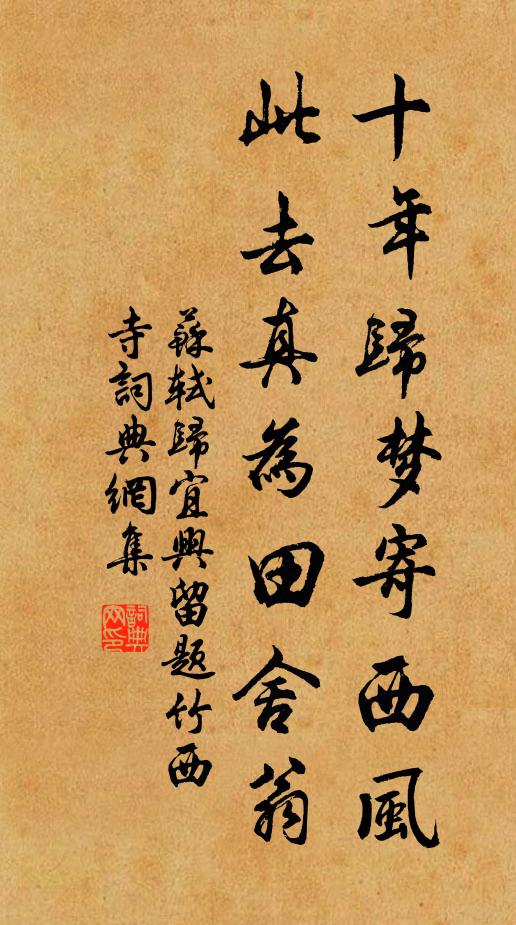 十年歸梦寄西風
此去真為田舍翁
蘇軾歸宜興留題竹西
寺詞典網集
詞典
网印